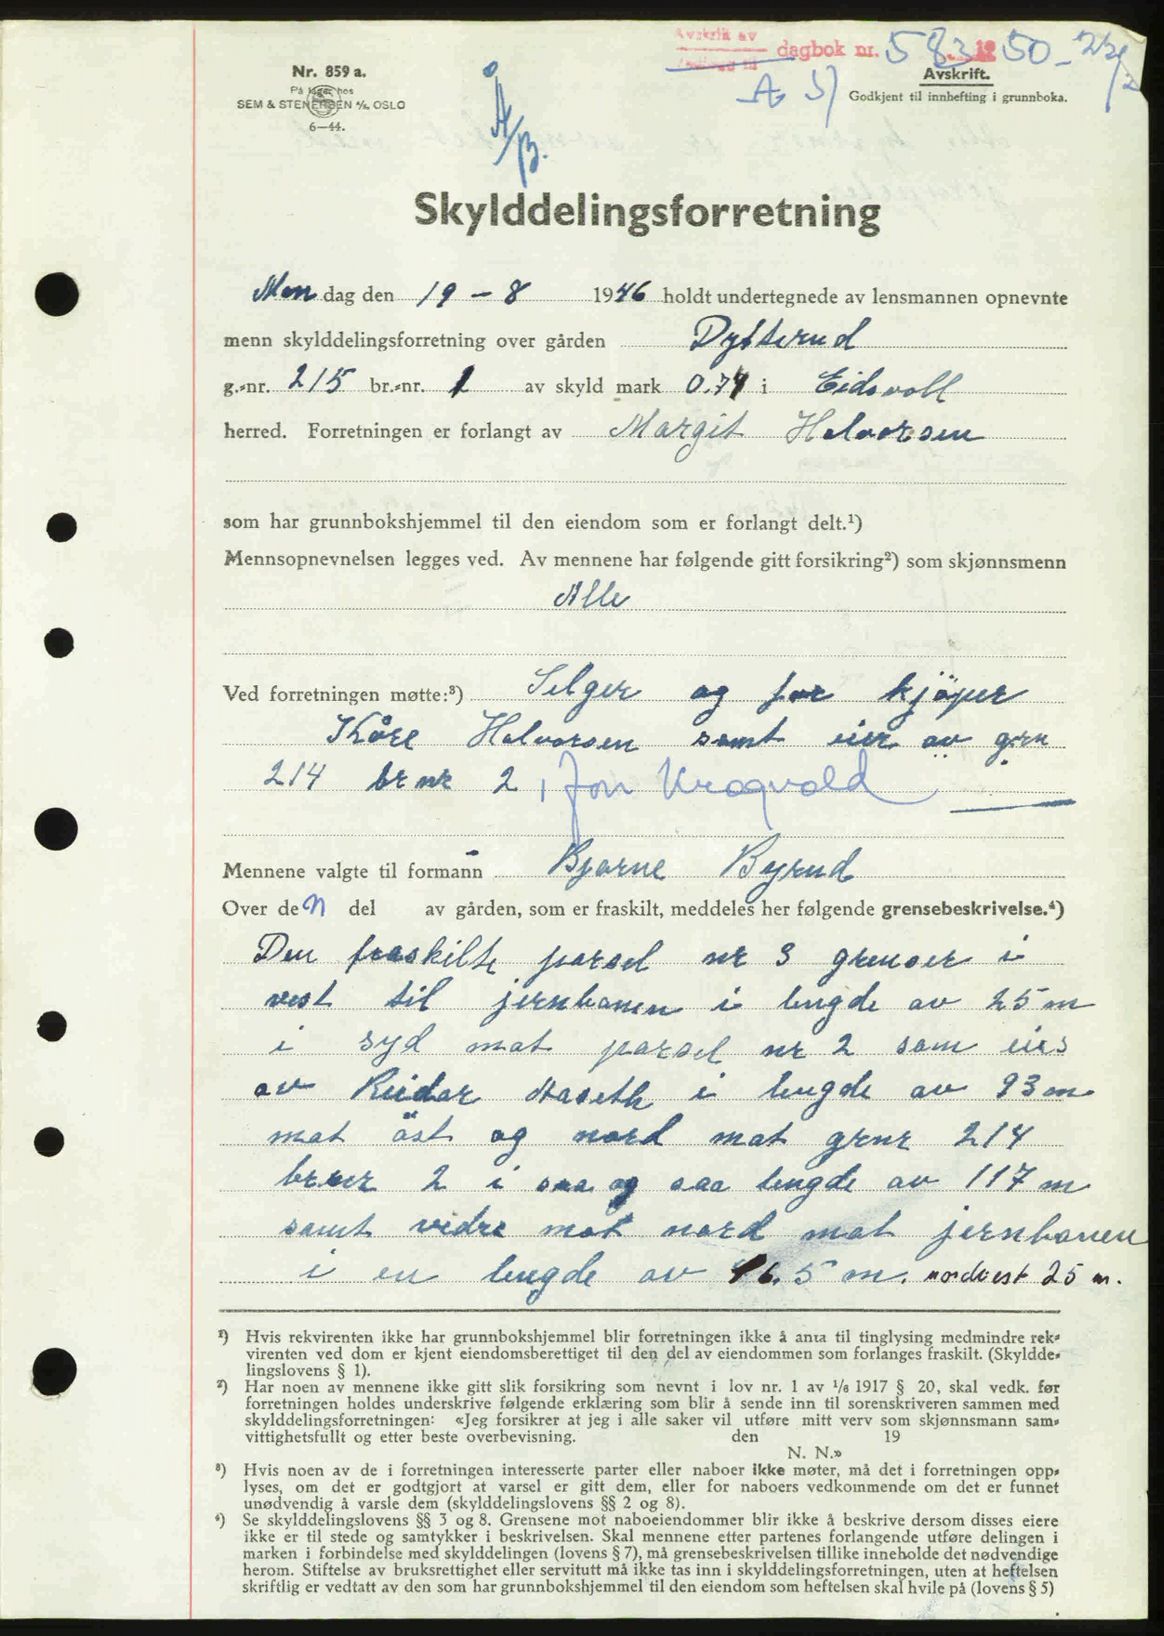 Avskrift av
dagbok nr. 583 1950 - 22/2
Avskrift.
Godkjent til innhefting i grunnboka.
Nr. 859 a.
På lager hos
SEM & STENERSEN A/S, OSLO
6—44.
A/B.
Skylddelingsforretning
Mandag den 19 - 8 1946 holdt undertegnede av lensmannen opnevnte
menn skylddelingsforretning over gården Dytterud
g.-nr. 215 br.-nr. 1 av skyld mark 0.71 i Eidsvoll
herred. Forretningen er forlangt av Margit Halvorsen
som har grunnbokshjemmel til den eiendom som er forlangt delt.¹)
Mennsopnevnelsen legges ved. Av mennene har følgende gitt forsikring²) som skjønnsmenn
Alle
Ved forretningen møtte:³) Selger og for kjöper
Kåre Halvorsen samt eier av grn
214 br nr 2, Jon Kroqvold
Mennene valgte til formann Bjarne Byrud
Over den del av gården, som er fraskilt, meddeles her følgende grensebeskrivelse.⁴)
Den fraskilte parsel nr 3 grenser i
vest til jernbanen i lengde av 25 m
i syd mot parsel nr 2 som eies
av Reidar Haseth i lengde av 93 m
mot öst og nord mot grnr 214
brnr 2 i saa og saa lengde av 117 m
samt vidre mot nord mot jernbanen
i en lengde av 16.5 m. nordvest 25 m.
¹) Hvis rekvirenten ikke har grunnbokshjemmel blir forretningen ikke å anta til tinglysing medmindre rek-
virenten ved dom er kjent eiendomsberettiget til den del av eiendommen som forlanges fraskilt. (Skyldde-
lingslovens § 1).
²) Har noen av mennene ikke gitt slik forsikring som nevnt i lov nr. 1 av 1/6 1917 § 20, skal vedk. før
forretningen holdes underskrive følgende erklæring som blir å sende inn til sorenskriveren sammen med
skylddelingsforretningen: «Jeg forsikrer at jeg i alle saker vil utføre mitt verv som skjønnsmann sam-
vittighetsfullt og etter beste overbevisning. den 19
N. N.»
³) Hvis noen av de i forretningen interesserte parter eller naboer ikke møter, må det i forretningen opp-
lyses, om det er godtgjort at varsel er gitt dem, eller for naboers vedkommende om det er funnet
unødvendig å varsle dem (skylddelingslovens §§ 2 og 8).
⁴) Se skylddelingslovens §§ 3 og 8. Grensene mot naboeiendommer blir ikke å beskrive dersom disses eiere
ikke er til stede og samtykker i beskrivelsen. Skal mennene etter partenes forlangende utføre delingen i
marken i forbindelse med skylddelingen (lovens § 7), må grensebeskrivelsen tillike inneholde det nødvendige
herom. Stiftelse av bruksrettighet eller servitutt må ikke tas inn i skylddelingsforretningen, uten at heftelsen
skriftlig er vedtatt av den som har grunnbokshjemmel til den eiendom som heftelsen skal hvile på (lovens § 5)